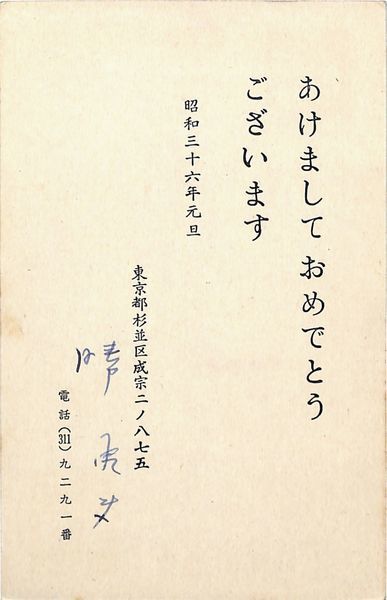 あけまして おめでとう
ございます
昭和三十六年元旦
東京都杉並区成宗二ノ八七五
電話(311)九二九一番